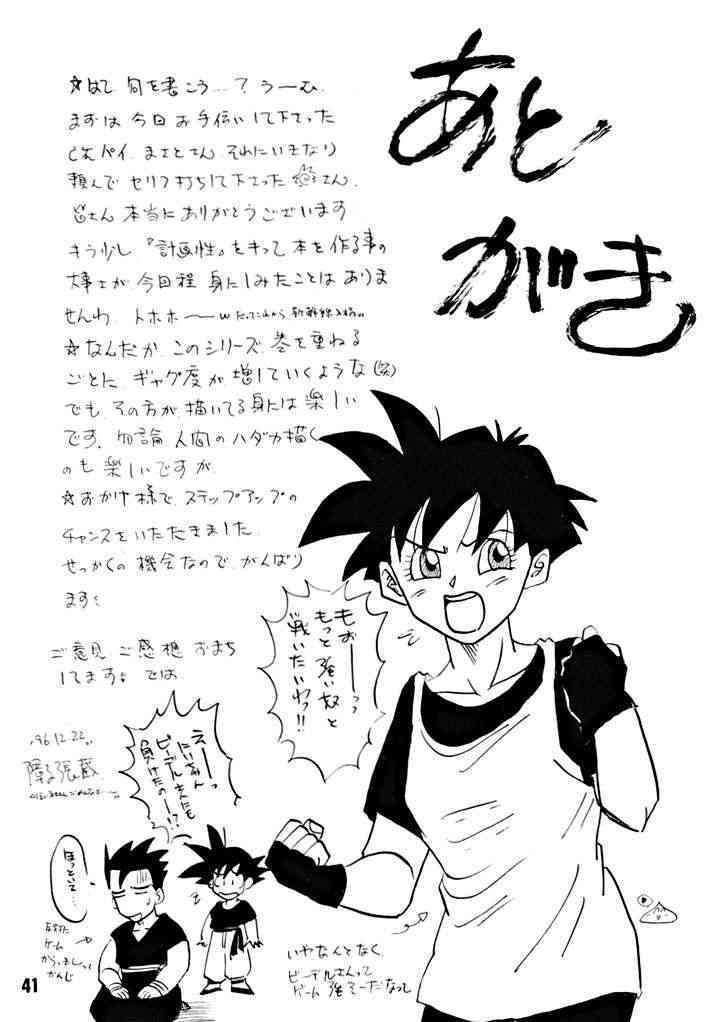 あと
がき
☆はて 何を書こう…？ うーむ
まずは 今回 お手伝いして下さった
パイ、まさとさん それにいきなり
頼んで セリフ打ちして下さった さん、
皆さん 本当にありがとうございます
もう少し『計画性』をもって本を作る事の
大事さが 今回程 身にしみたことは ありま
せんわ、トホホ〜
☆なんだか、このシリーズ、巻を重ねる
ごとに ギャグ度が 増していくような(笑)
でも その方が 描いてる身には 楽しい
です、勿論 人間のハダカ描く
のも 楽しいですが
☆おかげ様で、ステップアップの
チャンスをいただきました
せっかくの 機会なので、がんばり
ます
ご意見 ご感想 おまち
してます では
'96.12.22
もおーーっっ
もっと強い奴と
戦いたいわっ!!
えーーっ
にいちゃん
ビーデルさんにも
負けたのー!?
ほっといて…
ゲーム
かんじ
いやなんとなく
ビーデルさんって
ゲーム 強そーだなって
41